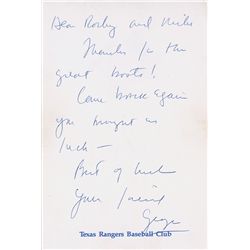 Dear Rosley and Mike
Thanks for the
great boots!
Come back again
you brought us
luck —
Best of luck
Your friend
George
Texas Rangers Baseball Club